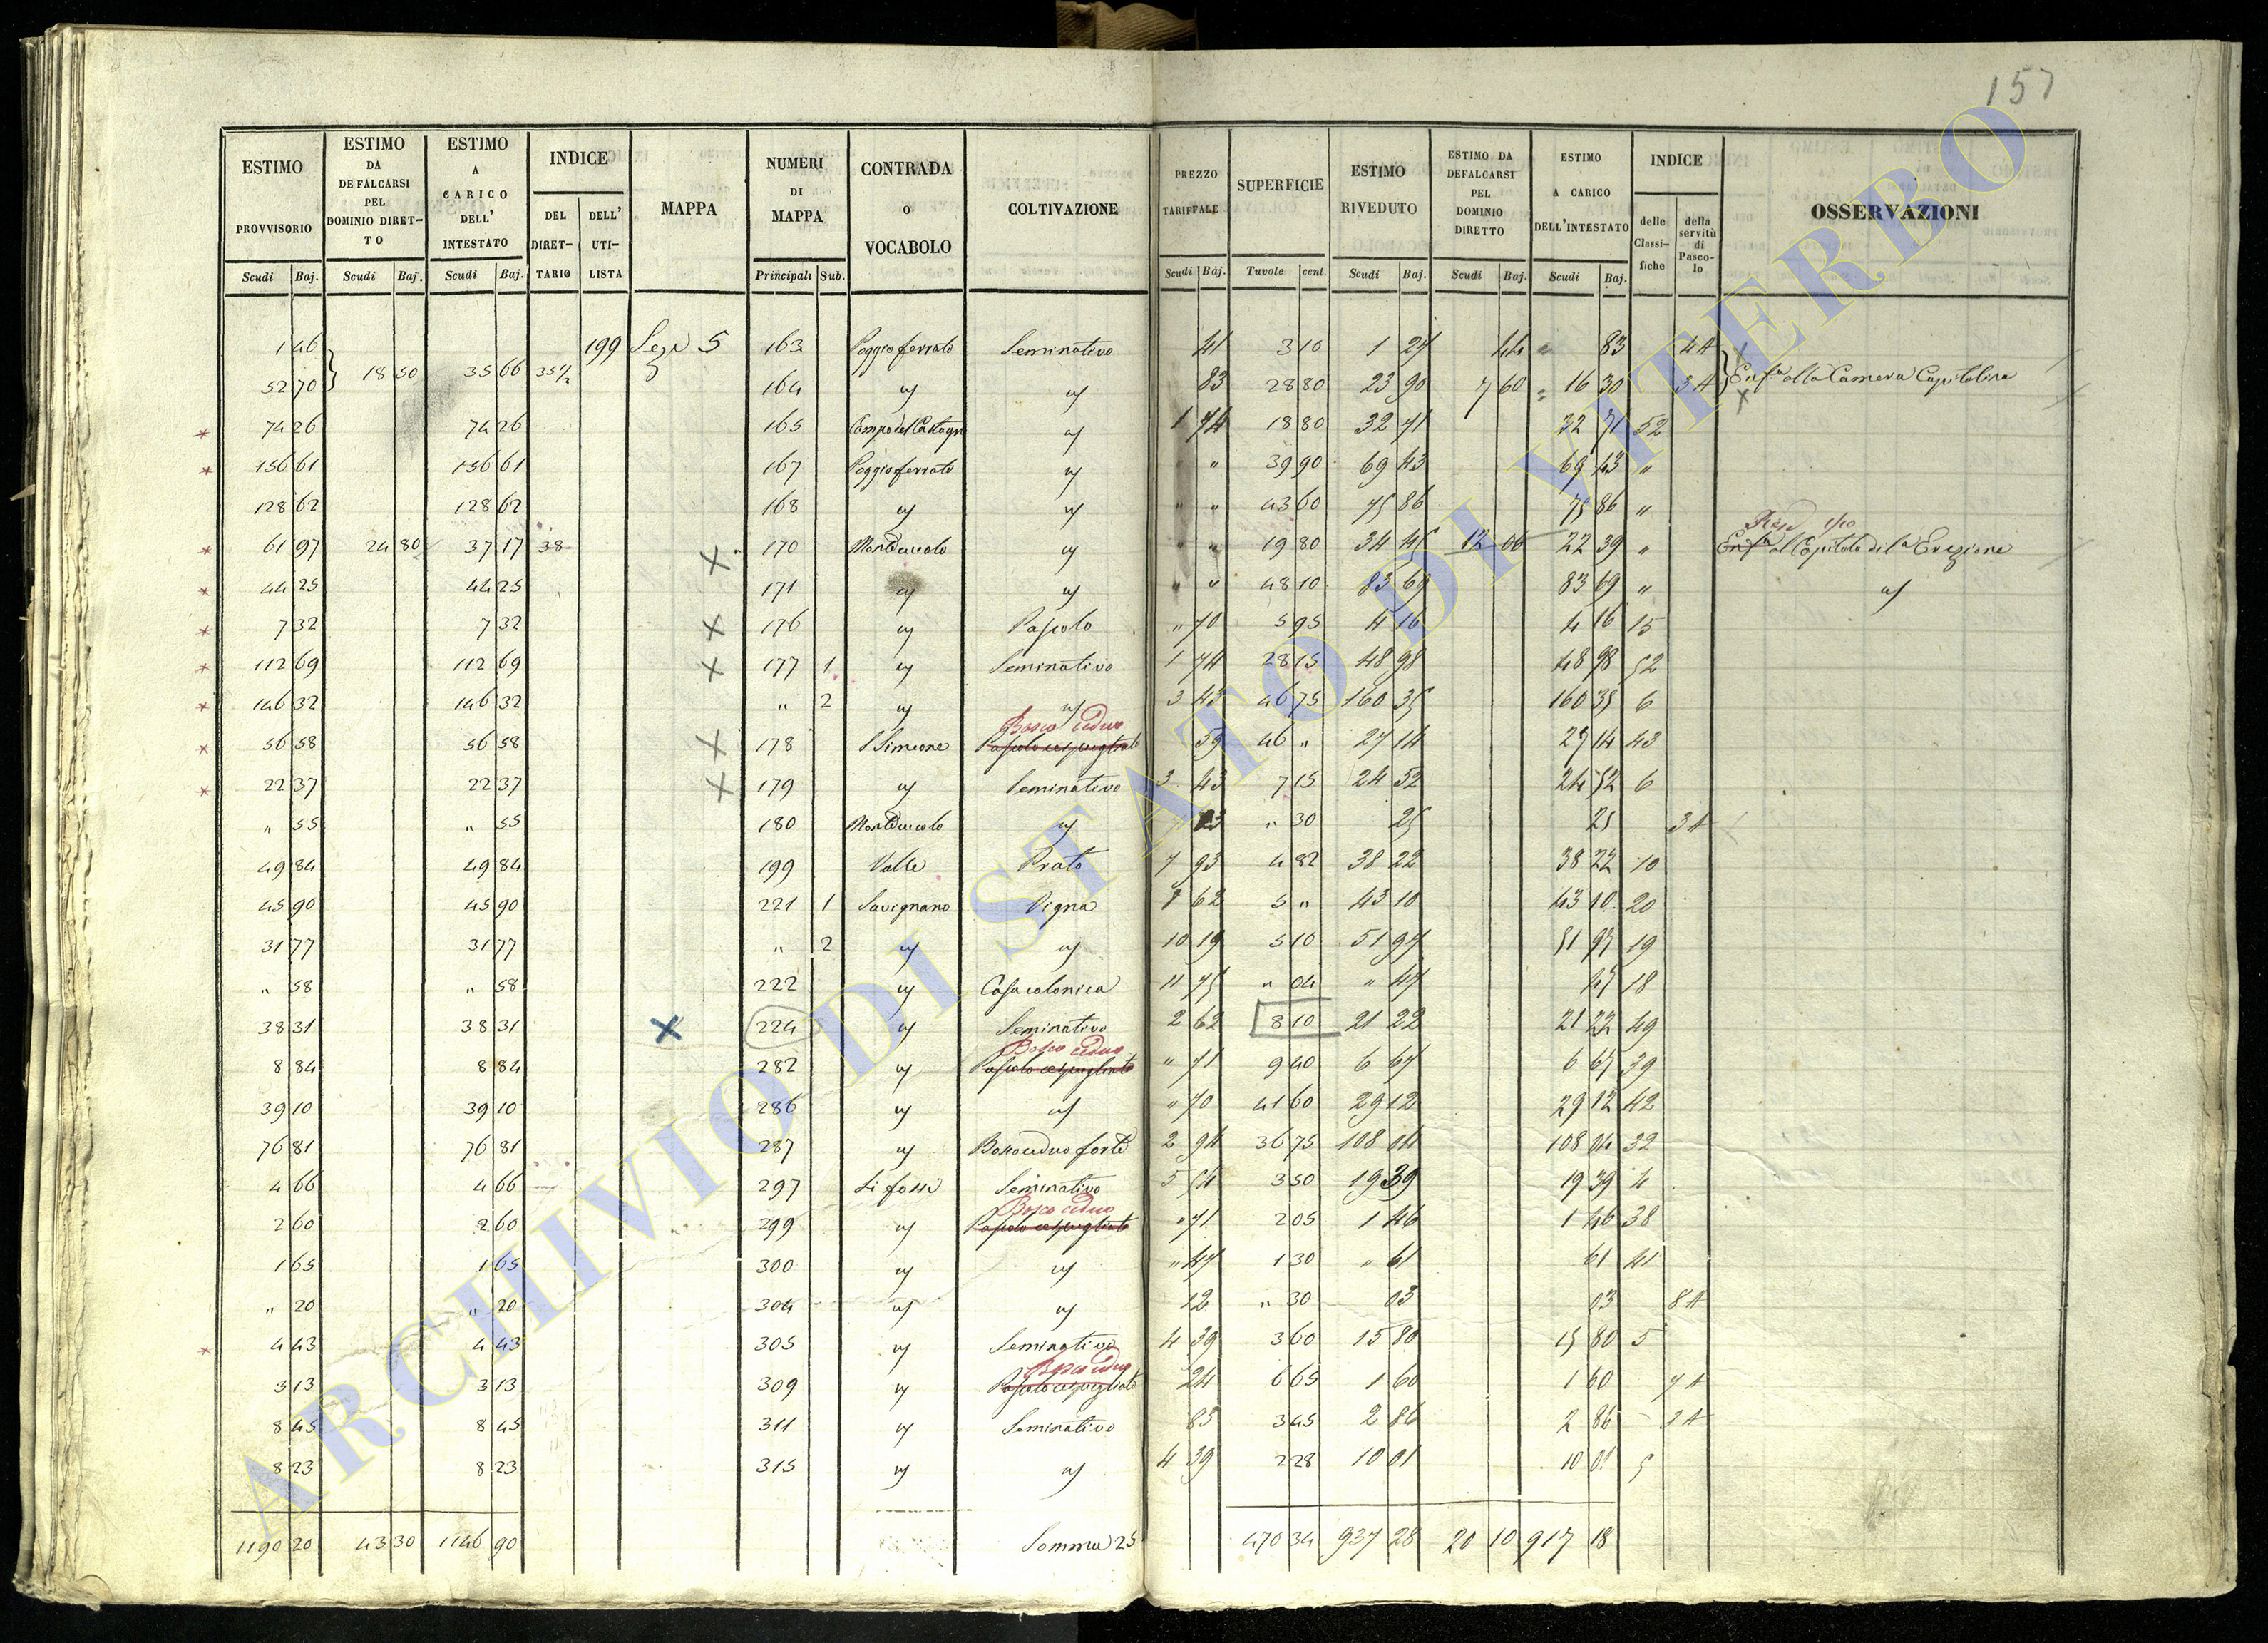 157
ESTIMO PROVVISORIO | ESTIMO DA DEFALCARSI PEL DOMINIO DIRETTO | ESTIMO A CARICO DELL' INTESTATO | INDICE | MAPPA | NUMERI DI MAPPA | CONTRADA O VOCABOLO | COLTIVAZIONE | PREZZO TARIFFALE | SUPERFICIE | ESTIMO RIVEDUTO | ESTIMO DA DEFALCARSI PEL DOMINIO DIRETTO | ESTIMO A CARICO DELL'INTESTATO | INDICE | OSSERVAZIONI
DEL DIRETTARIO | DELL' UTILISTA | delle Classifiche | della servitù di Pascolo
Scudi | Baj. | Scudi | Baj. | Scudi | Baj. | Principali | Sub. | Scudi | Baj. | Tavole | cent. | Scudi | Baj. | Scudi | Baj. | Scudi | Baj.
1 46 | 199 | Sez. 5 | 163 | Poggio ferrato | Seminativo | 41 | 3 10 | 1 27 | 44 | 83 | 4A
52 70 | 18 50 | 35 66 | 35½ | 164 | " | " | 83 | 28 80 | 23 90 | 7 60 | 16 30 | 3A | Enf.a alla Camera Capitolina
74 26 | 74 26 | 165 | Campo del Castagno | " | 1 74 | 18 80 | 32 71 | 32 71 | 52
156 61 | 156 61 | 167 | Poggio ferrato | " | " | 39 90 | 69 43 | 69 43 | "
128 62 | 128 62 | 168 | " | " | " " | 43 60 | 75 86 | 75 86 | "
61 97 | 24 80 | 37 17 | 38 | 170 | Monteducolo | " | " " | 19 80 | 34 45 | 12 06 | 22 39 | " | Enf.a al Capitolo di
44 25 | 44 25 | 171 | " | " | " " | 48 10 | 83 69 | 83 69 | " | "
7 32 | 7 32 | 176 | " | Pascolo | " 70 | 5 95 | 4 16 | 4 16 | 15
112 69 | 112 69 | 177 | 1 | " | Seminativo | 1 74 | 28 15 | 48 98 | 48 98 | 52
146 32 | 146 32 | " | 2 | " | " | 3 43 | 46 75 | 160 35 | 160 35 | 6
Bosco ceduo
56 58 | 56 58 | 178 | S. Simeone | Pascolo cespugliato | 59 | 46 " | 27 14 | 27 14 | 43
22 37 | 22 37 | 179 | " | Seminativo | 3 43 | 7 15 | 24 52 | 24 52 | 6
" 55 | " 55 | 180 | Monteducolo | " | 83 | " 30 | 25 | 25 | 3A
49 84 | 49 84 | 199 | Valle | Prato | 7 93 | 4 82 | 38 22 | 38 22 | 10
45 90 | 45 90 | 221 | 1 | Savignano | Vigna | 8 62 | 5 " | 43 10 | 43 10 | 20
31 77 | 31 77 | " | 2 | " | " | 10 19 | 5 10 | 51 97 | 51 97 | 19
" 58 | " 58 | 222 | " | Casa colonica | 11 75 | " 04 | " 47 | 47 | 18
38 31 | 38 31 | 224 | " | Seminativo | 2 62 | 8 10 | 21 22 | 21 22 | 49
Bosco ceduo
8 84 | 8 84 | 282 | " | Pascolo cespugliato | " 71 | 9 40 | 6 67 | 6 67 | 39
39 10 | 39 10 | 286 | " | " | " 70 | 41 60 | 29 12 | 29 12 | 42
76 81 | 76 81 | 287 | " | Bosco ceduo forte | 2 94 | 36 75 | 108 04 | 108 04 | 32
4 66 | 4 66 | 297 | Li fossi | Seminativo | 5 54 | 3 50 | 19 39 | 19 39 | 4
Bosco ceduo
2 60 | 2 60 | 299 | " | Pascolo cespugliato | " 71 | 2 05 | 1 46 | 1 46 | 38
1 65 | 1 65 | 300 | " | " | " 47 | 1 30 | " 61 | 61 | 41
" 20 | " 20 | 304 | " | " | 12 | " 30 | 03 | 03 | 8A
4 43 | 4 43 | 305 | " | Seminativo | 4 39 | 3 60 | 15 80 | 15 80 | 5
Bosco ceduo
3 13 | 3 13 | 309 | " | Pascolo cespugliato | 24 | 6 65 | 1 60 | 1 60 | 7A
8 45 | 8 45 | 311 | " | Seminativo | 83 | 3 45 | 2 86 | 2 86 | 3A
8 23 | 8 23 | 315 | " | " | 4 39 | 2 28 | 10 01 | 10 01 | 5
1190 20 | 43 30 | 1146 90 | Somma 25 | 470 34 | 937 28 | 20 10 | 917 18
ARCHIVIO DI STATO DI VITERBO